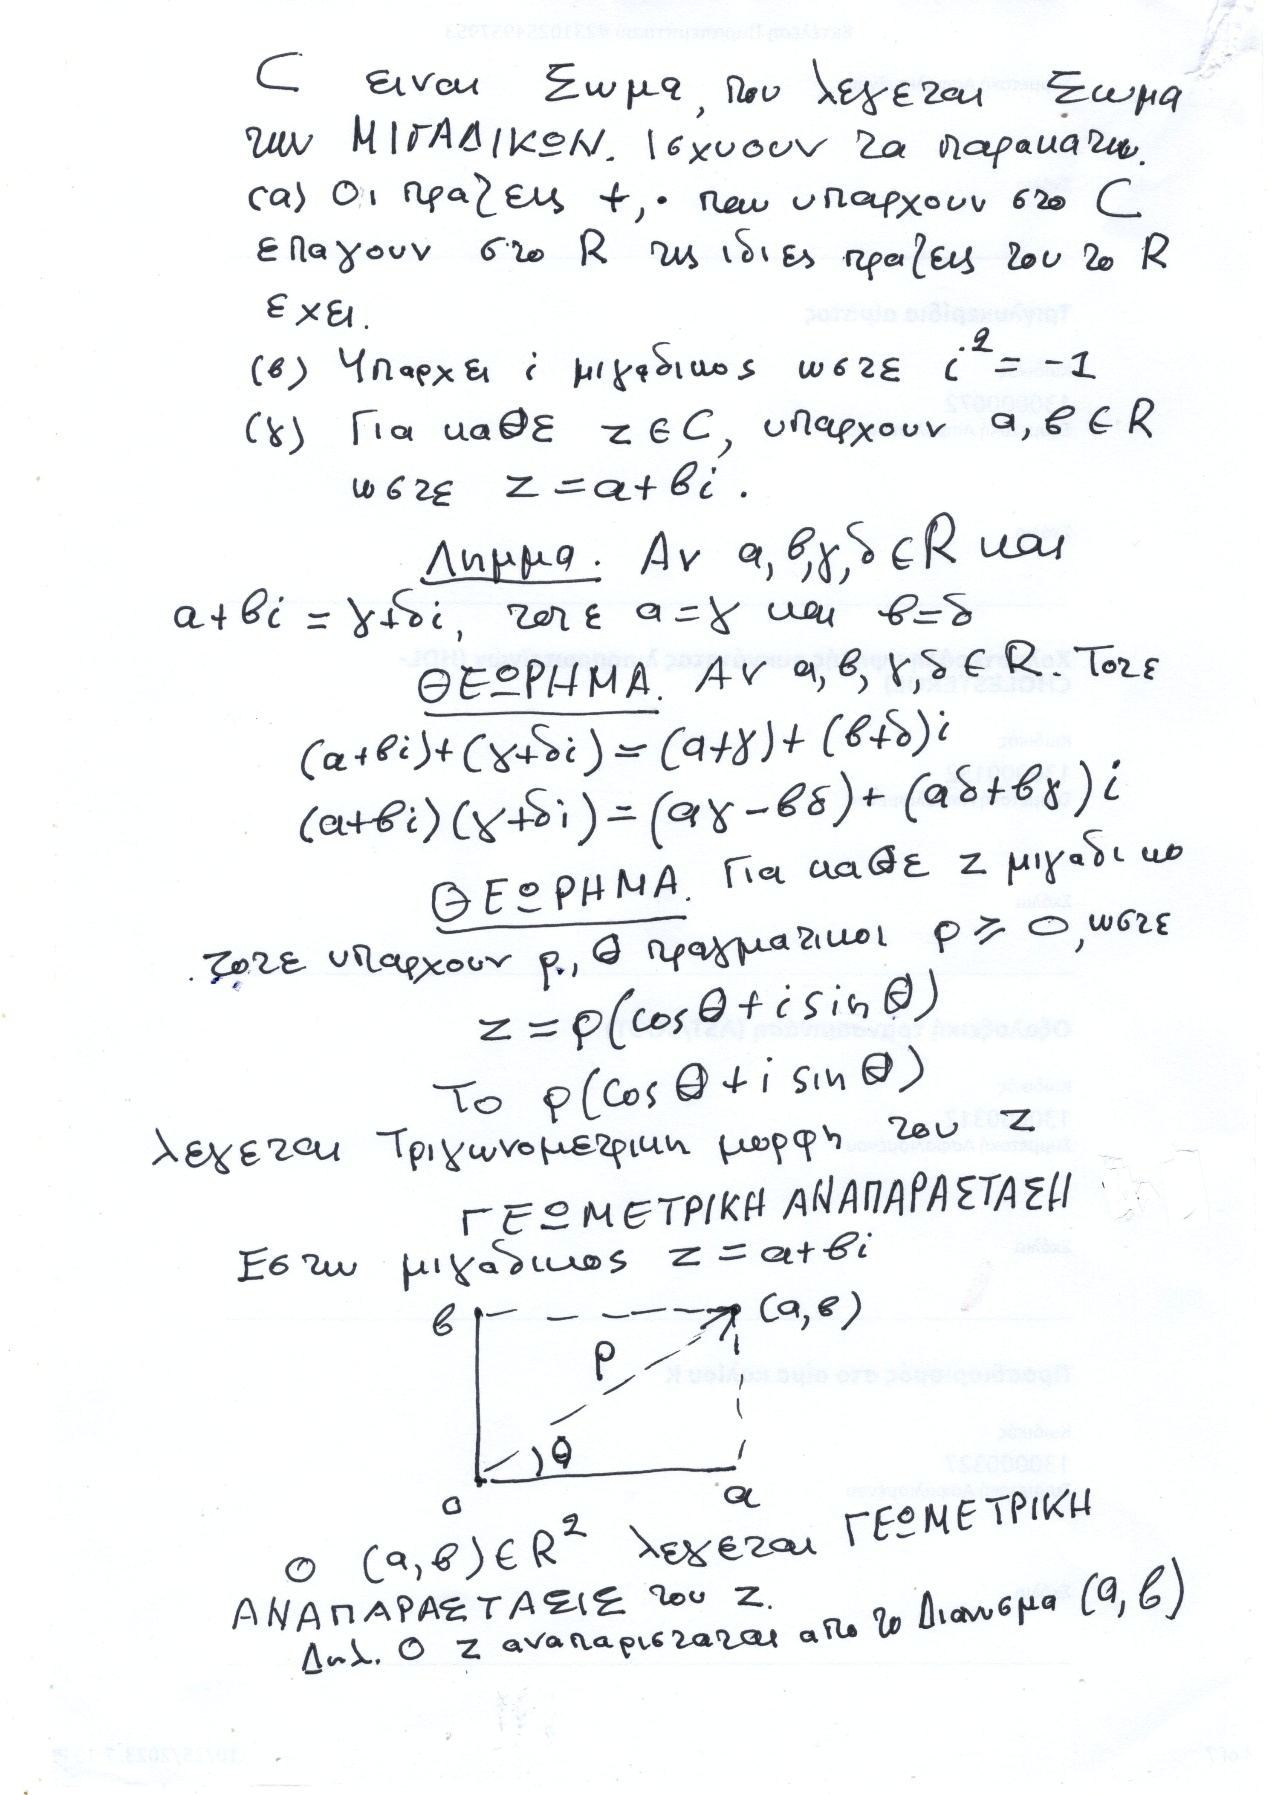 C ειναι Σωμα, που λεγεται Σωμα
των ΜΙΓΑΔΙΚΩΝ. Ισχυουν τα παρακατω.
(α) Οι πραξεις +, · που υπαρχουν στο C
επαγουν στο R τις ιδιες πραξεις που το R
εχει.
(β) Υπαρχει i μιγαδικος ωστε i² = -1
(γ) Για καθε z ∈ C, υπαρχουν α, β ∈ R
ωστε z = α + βi.
Λημμα. Αν α, β, γ, δ ∈ R και
α + βi = γ + δi, τοτε α = γ και β = δ
ΘΕΩΡΗΜΑ. Αν α, β, γ, δ ∈ R. Τοτε
(α+βi)+(γ+δi) = (α+γ)+(β+δ)i
(α+βi)(γ+δi) = (αγ-βδ)+(αδ+βγ)i
ΘΕΩΡΗΜΑ. Για καθε z μιγαδικο
τοτε υπαρχουν ρ, θ πραγματικοι ρ ≥ 0, ωστε
z = ρ(cosθ + i sinθ)
Το ρ(cosθ + i sinθ)
λεγεται Τριγωνομετρικη μορφη του z
ΓΕΩΜΕΤΡΙΚΗ ΑΝΑΠΑΡΑΣΤΑΣΗ
Εστω μιγαδικος z = α + βi
β (α, β)
ρ
θ
0 α
Ο (α, β) ∈ R² λεγεται ΓΕΩΜΕΤΡΙΚΗ
ΑΝΑΠΑΡΑΣΤΑΣΙΣ του z.
Δηλ. Ο z αναπαρισταται απο το Διανυσμα (α, β)